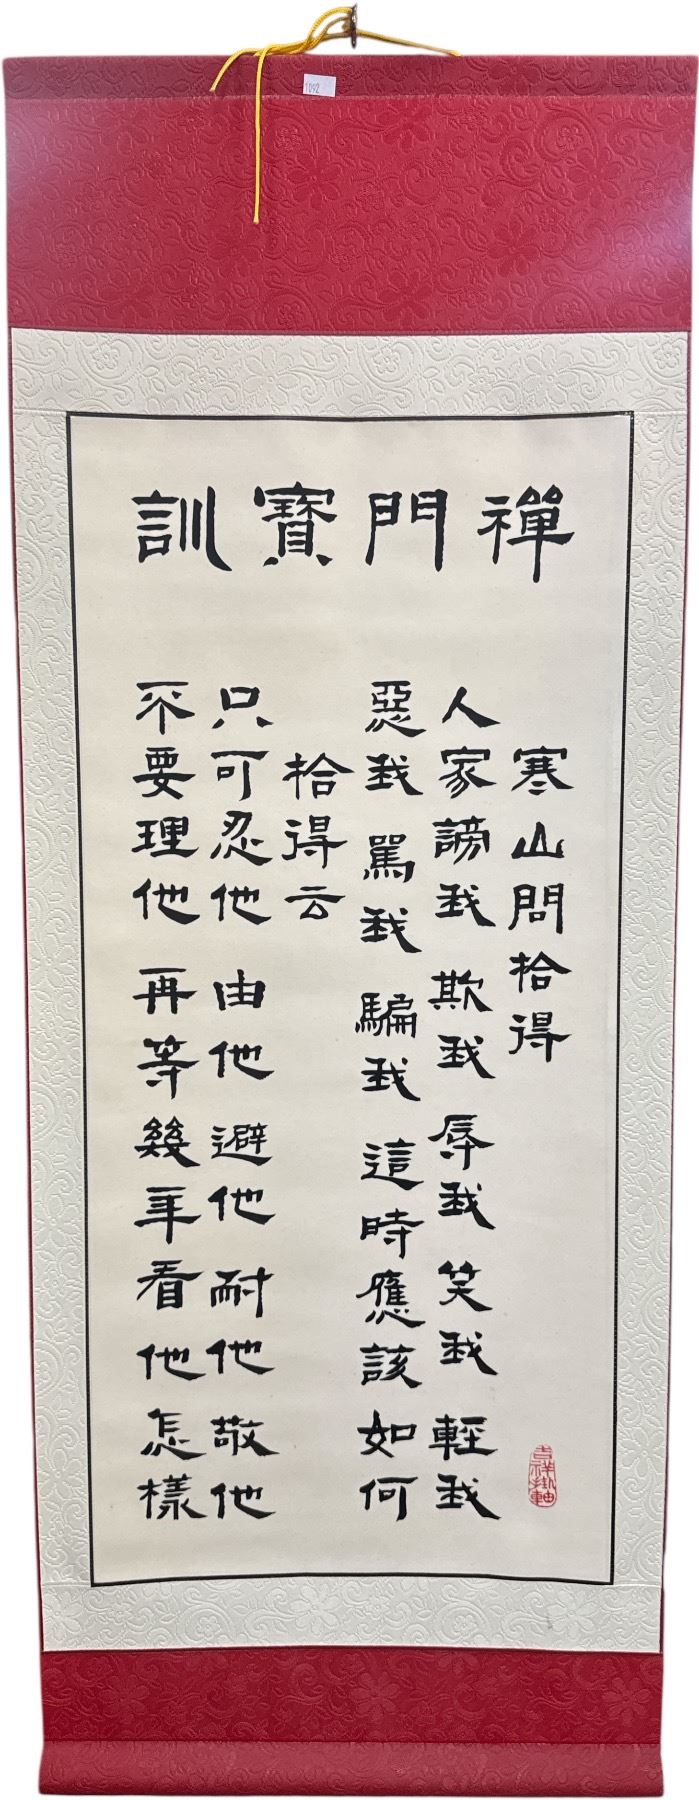 1092
禪門寶訓
寒山問拾得
人家謗我 欺我 辱我 笑我 輕我
惡我 罵我 騙我 這時應該如何
拾得云
只可忍他 由他 避他 耐他 敬他
不要理他 再等幾年看他怎樣
吉祥掛軸